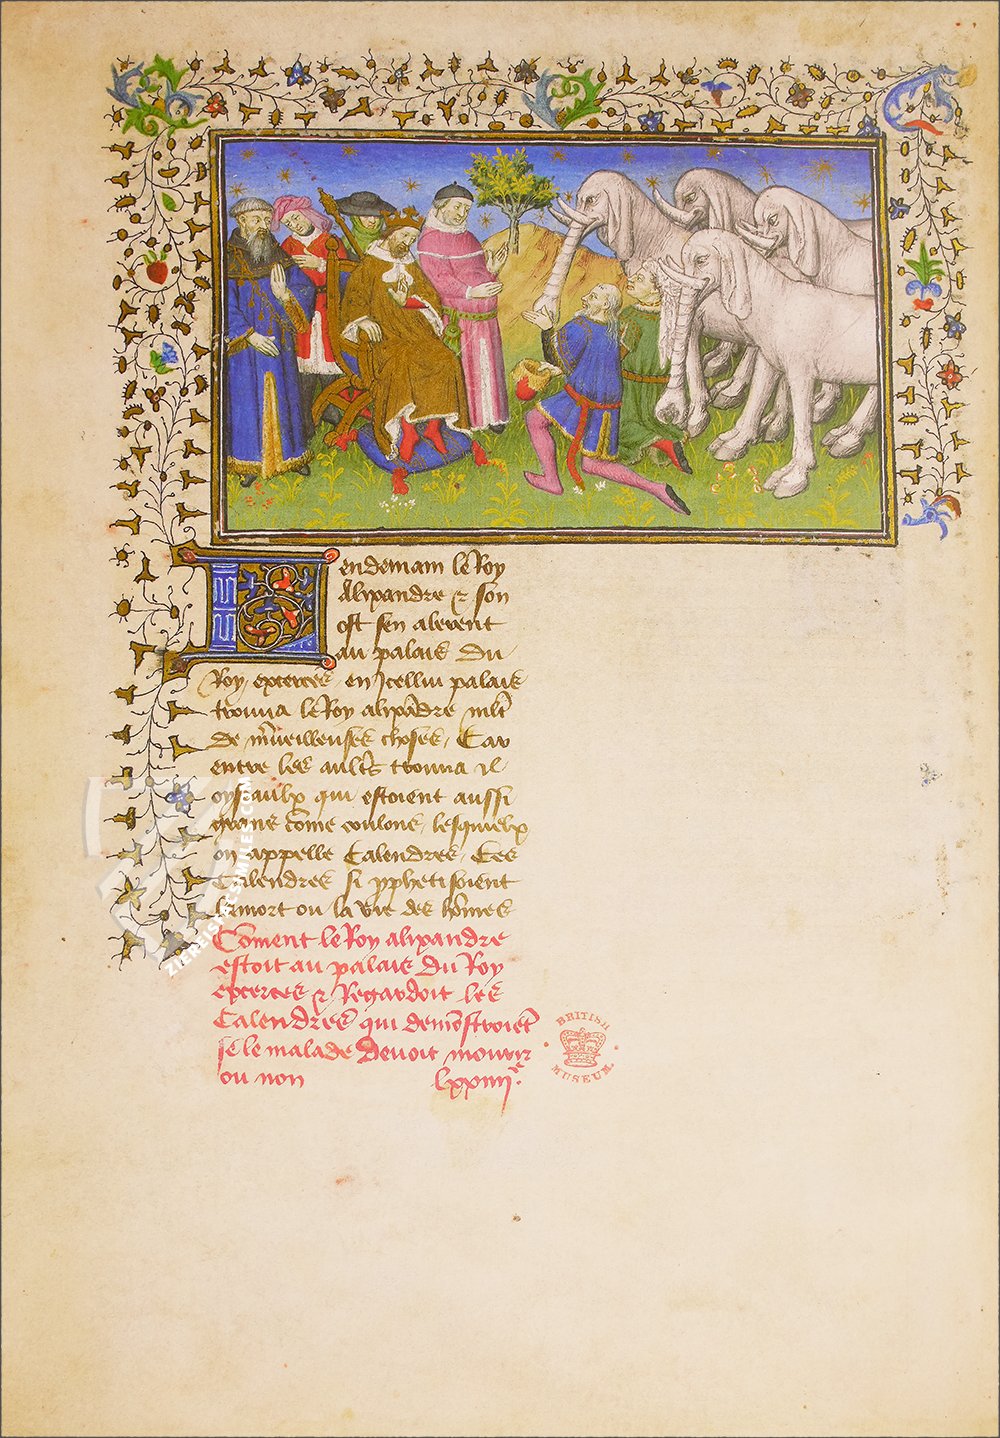 Lendemain le Roy
Alixandre & son
ost sen alerent
au palais du
Roy excerces en jcellui palais
trouua le Roy alixãdre mlt
de mueilleuses choses Car
entre les aults trouua il
oyseaulx qui estoient aussi
grans cõme coulons lesquielx
on appelle Calendres Ces
Calendres si pphetisoient
la mort ou la vie des hõmes
Cõment le Roy alixandre
estoit au palais du Roy
excerces & Regardoit les
Calendres qui demõstroiẽt
se le malade devoit mourir
ou non lxxiiii
BRITISH
MUSEUM
ZIEREISFACSIMILES.COM